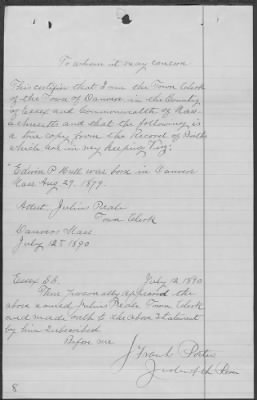 To whom it may concern
This certifies that I am the Town Clerk
of the Town of Danvers in the County
of Essex and Commonwealth of Mass
achusetts and that the following is
a true copy from the Record of Births
which are in my keeping Viz:
"Edwin P. Hull was born in Danvers
Mass Aug 29. 1879.
Attest. Julius Peale
Town Clerk
Danvers Mass
July 12th 1890
Essex S.S. July 12 1890
Then personally appeared the
above named Julius Peale Town Clerk
and made oath to the above Statement
by him Subscribed
Before me
J Frank Porter
Justice of the Peace
8